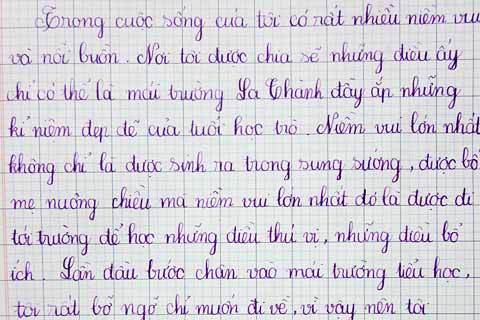 Trong cuộc sống của tôi có rất nhiều niềm vui
và nỗi buồn. Nơi tôi được chia sẻ những điều ấy
chỉ có thể là mái trường La Thành đầy ắp những
kỉ niệm đẹp đẽ của tuổi học trò. Niềm vui lớn nhất
không chỉ là được sinh ra trong sung sướng, được bố
mẹ nuông chiều mà niềm vui lớn nhất đó là được đi
tới trường để học những điều thú vị, những điều bổ
ích. Lần đầu bước chân vào mái trường tiểu học,
tôi rất bỡ ngỡ chỉ muốn đi về, vì vậy nên tôi